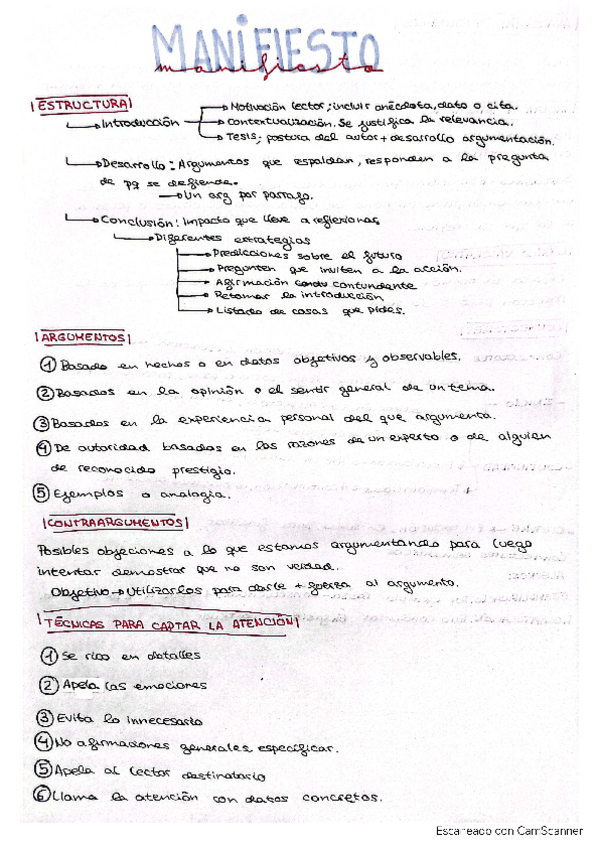 MANIFIESTO
manifiesto
ESTRUCTURA
Introducción
Motivación lector; incluir anécdota, dato o cita.
Contextualización. Se justifica la relevancia.
Tesis; postura del autor + desarrollo argumentación.
Desarrollo: Argumentos que respaldan, responden a la pregunta
de pq se defiende.
Un arg por parrafo.
Conclusión: impacto que lleve a reflexionar
Diferentes estrategias
Predicciones sobre el futuro
Pregunten que inviten a la acción.
Afirmación contundente
Retomar la introducción
Listado de cosas que pides.
ARGUMENTOS
1 Basado en hechos o en datos objetivos y observables.
2 Basados en la opinión o el sentir general de un tema.
3 Basados en la experiencia personal del que argumenta.
4 De autoridad basados en las razones de un experto o de alguien
de reconocido prestigio.
5 Ejemplos o analogia.
CONTRAARGUMENTOS
Posibles objeciones a lo que estamos argumentando para luego
intentar demostrar que no son verdad.
Objetivo → Utilizarlos para darle + fuerza al argumento.
TÉCNICAS PARA CAPTAR LA ATENCIÓN
1 Se rico en detalles
2 Apela las emociones
3 Evita lo innecesario
4 No afirmaciones generales especificar.
5 Apela al lector destinatario
6 Llama la atención con datos concretos.
Escaneado con CamScanner